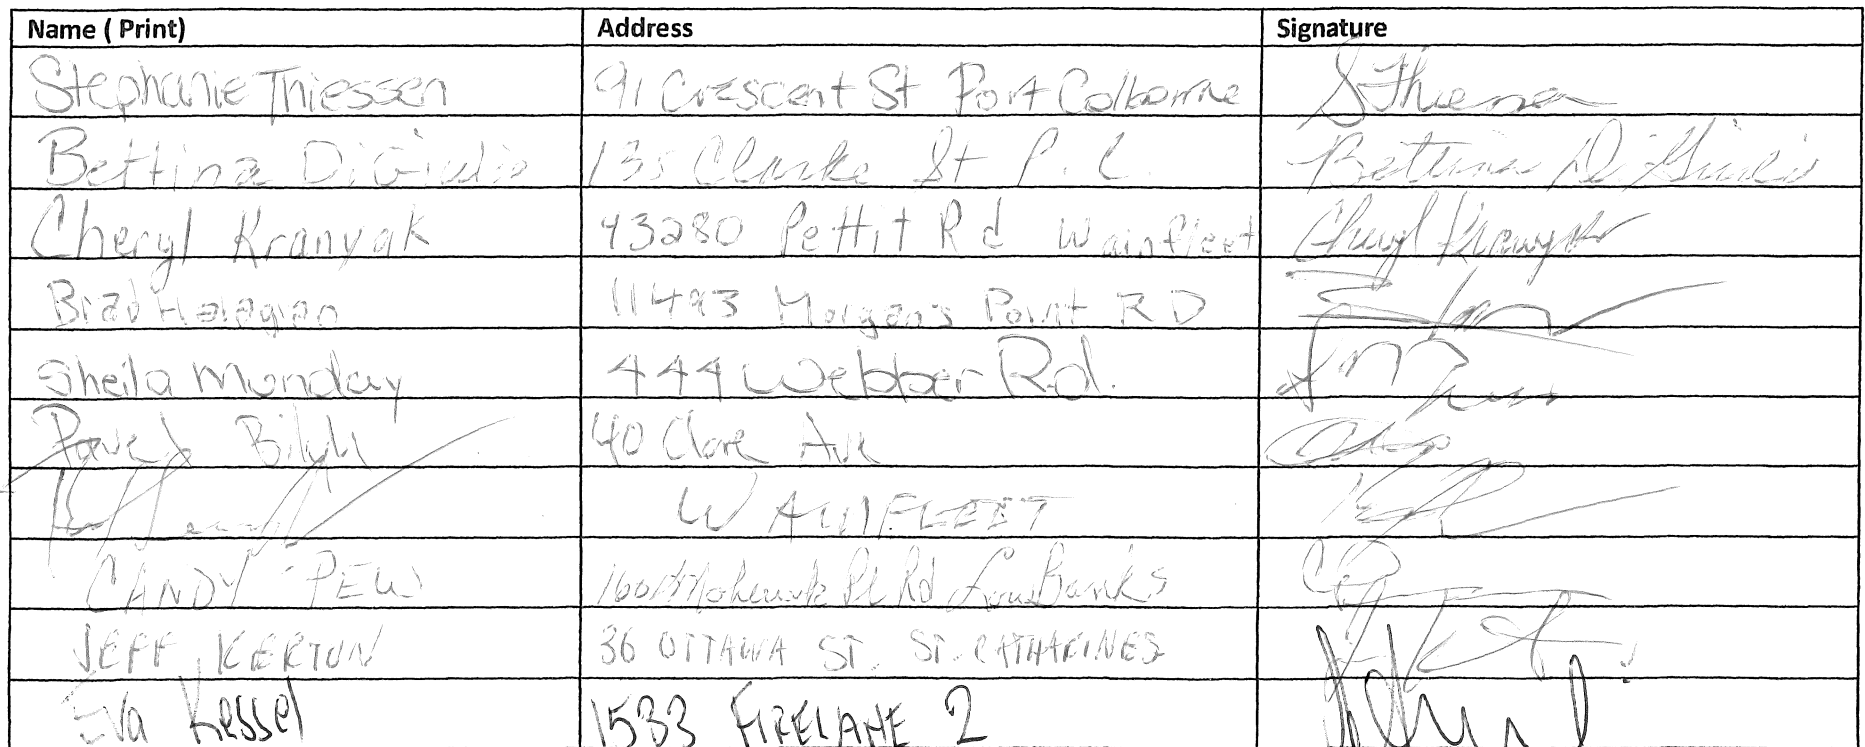 Name ( Print) Address Signature
Stephanie Thiessen 91 Crescent St Port Colborne SThiessen
Bettina DiGiulio 135 Clarke St P. C. Bettina DiGiulio
Cheryl Kranyak 43280 Pettit Rd Wainfleet Cheryl Kranyak
Brad 11493 Morgan's Point RD
Sheila Munday 444 Webber Rd.
40 Ave
WAINFLEET
CANDY PEW Mohawk Pt Rd LowBanks
JEFF KERTON 36 OTTAWA ST. ST. CATHARINES
Eva Kessel 1533 FIRELANE 2